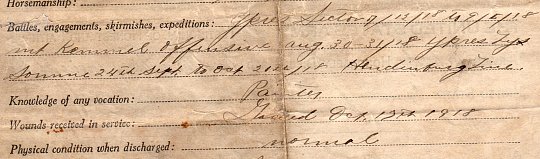 Horsemanship:
Battles, engagements, skirmishes, expeditions: Ypres Sector 9/12/18 to 9/5/18
mt Kemmel Offensive aug. 30-31/18 Ypres Lys
Somme 24th Sept. to Oct 20th/18 Hendenburg Line
Knowledge of any vocation: Painter
Wounds received in service: Gassed Oct, 13th 1918
Physical condition when discharged: normal